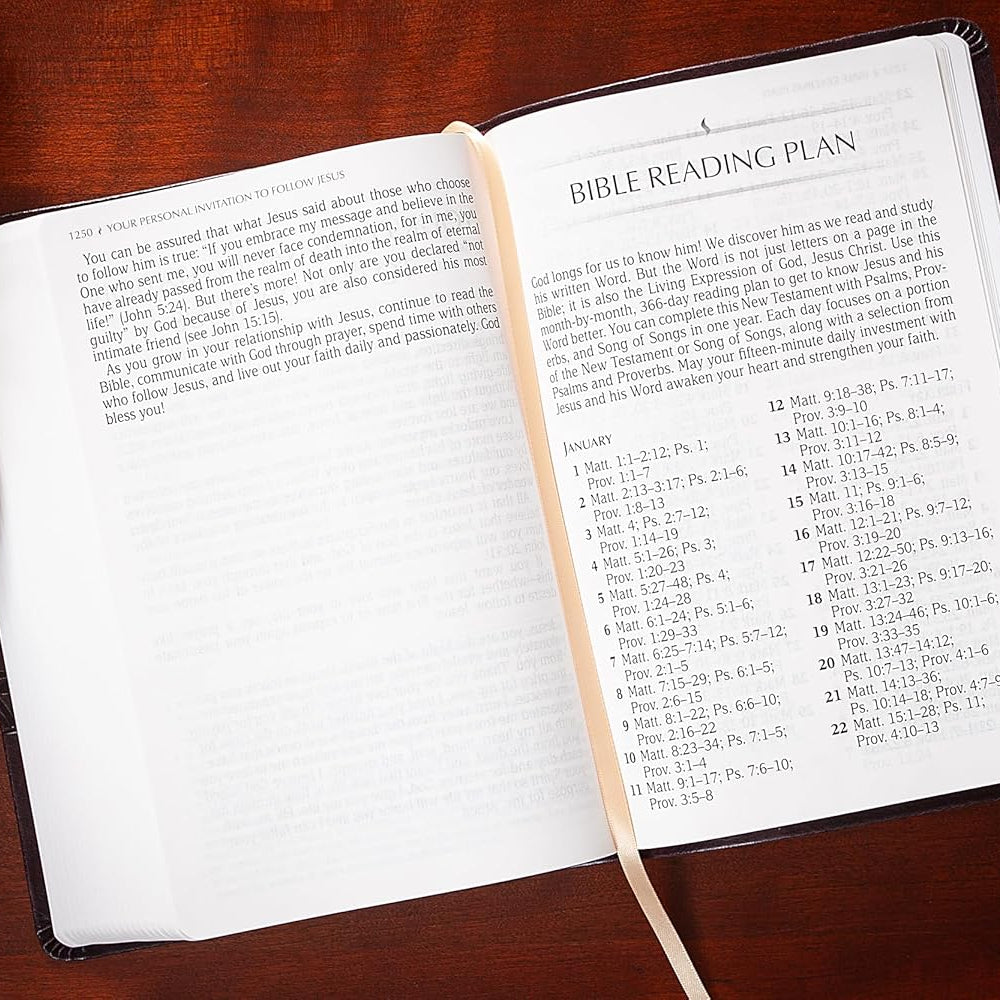 1250 YOUR PERSONAL INVITATION TO FOLLOW JESUS
You can be assured that what Jesus said about those who choose
to follow him is true: “If you embrace my message and believe in the
One who sent me, you will never face condemnation, for in me, you
have already passed from the realm of death into the realm of eternal
life!” (John 5:24). But there's more! Not only are you declared “not
guilty” by God because of Jesus, you are also considered his most
intimate friend (see John 15:15).
As you grow in your relationship with Jesus, continue to read the
Bible, communicate with God through prayer, spend time with others
who follow Jesus, and live out your faith daily and passionately. God
bless you!
BIBLE READING PLAN
God longs for us to know him! We discover him as we read and study
his written Word. But the Word is not just letters on a page in the
Bible; it is also the Living Expression of God, Jesus Christ. Use this
month-by-month, 366-day reading plan to get to know Jesus and his
Word better. You can complete this New Testament with Psalms, Prov-
erbs, and Song of Songs in one year. Each day focuses on a portion
of the New Testament or Song of Songs, along with a selection from
Psalms and Proverbs. May your fifteen-minute daily investment with
Jesus and his Word awaken your heart and strengthen your faith.
JANUARY
1 Matt. 1:1–2:12; Ps. 1;
Prov. 1:1–7
2 Matt. 2:13–3:17; Ps. 2:1–6;
Prov. 1:8–13
3 Matt. 4; Ps. 2:7–12;
Prov. 1:14–19
4 Matt. 5:1–26; Ps. 3;
Prov. 1:20–23
5 Matt. 5:27–48; Ps. 4;
Prov. 1:24–28
6 Matt. 6:1–24; Ps. 5:1–6;
Prov. 1:29–33
7 Matt. 6:25–7:14; Ps. 5:7–12;
Prov. 2:1–5
8 Matt. 7:15–29; Ps. 6:1–5;
Prov. 2:6–15
9 Matt. 8:1–22; Ps. 6:6–10;
Prov. 2:16–22
10 Matt. 8:23–34; Ps. 7:1–5;
Prov. 3:1–4
11 Matt. 9:1–17; Ps. 7:6–10;
Prov. 3:5–8
12 Matt. 9:18–38; Ps. 7:11–17;
Prov. 3:9–10
13 Matt. 10:1–16; Ps. 8:1–4;
Prov. 3:11–12
14 Matt. 10:17–42; Ps. 8:5–9;
Prov. 3:13–15
15 Matt. 11; Ps. 9:1–6;
Prov. 3:16–18
16 Matt. 12:1–21; Ps. 9:7–12;
Prov. 3:19–20
17 Matt. 12:22–50; Ps. 9:13–16;
Prov. 3:21–26
18 Matt. 13:1–23; Ps. 9:17–20;
Prov. 3:27–32
19 Matt. 13:24–46; Ps. 10:1–6;
Prov. 3:33–35
20 Matt. 13:47–14:12;
Ps. 10:7–13; Prov. 4:1–6
21 Matt. 14:13–36;
Ps. 10:14–18; Prov. 4:7–9
22 Matt. 15:1–28; Ps. 11;
Prov. 4:10–13